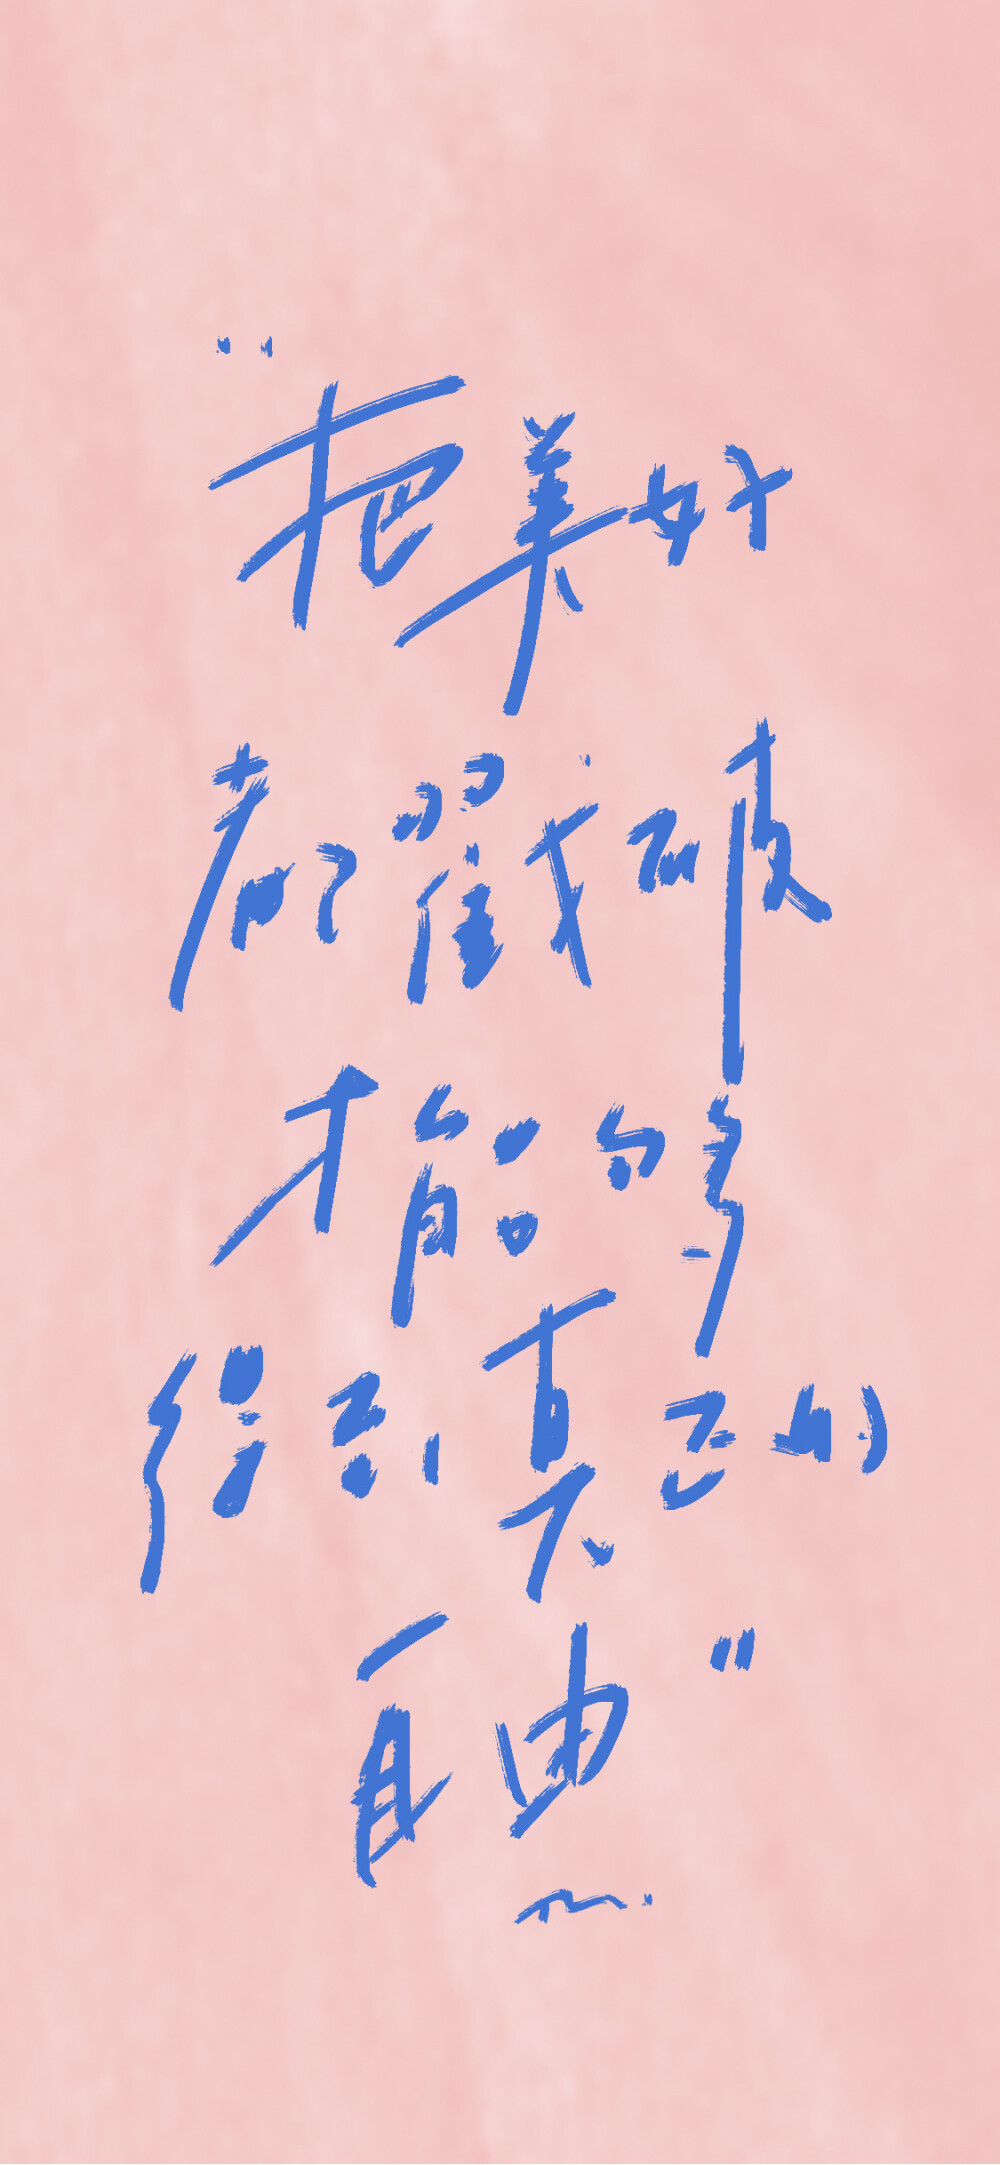 "把美好
都戳破
才能够
得到真正的
自由"